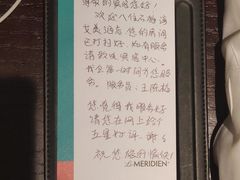 尊敬的宾客您好!
欢迎入住石梅湾
艾美酒店 您的房间
已打扫好。如有服务
请致电宾客中心。
我会第一时间为您服
务。服务员:王
您觉得我服务好
请您在网上给个
五星好评。谢谢
祝您旅途愉快!
LE MERIDIEN